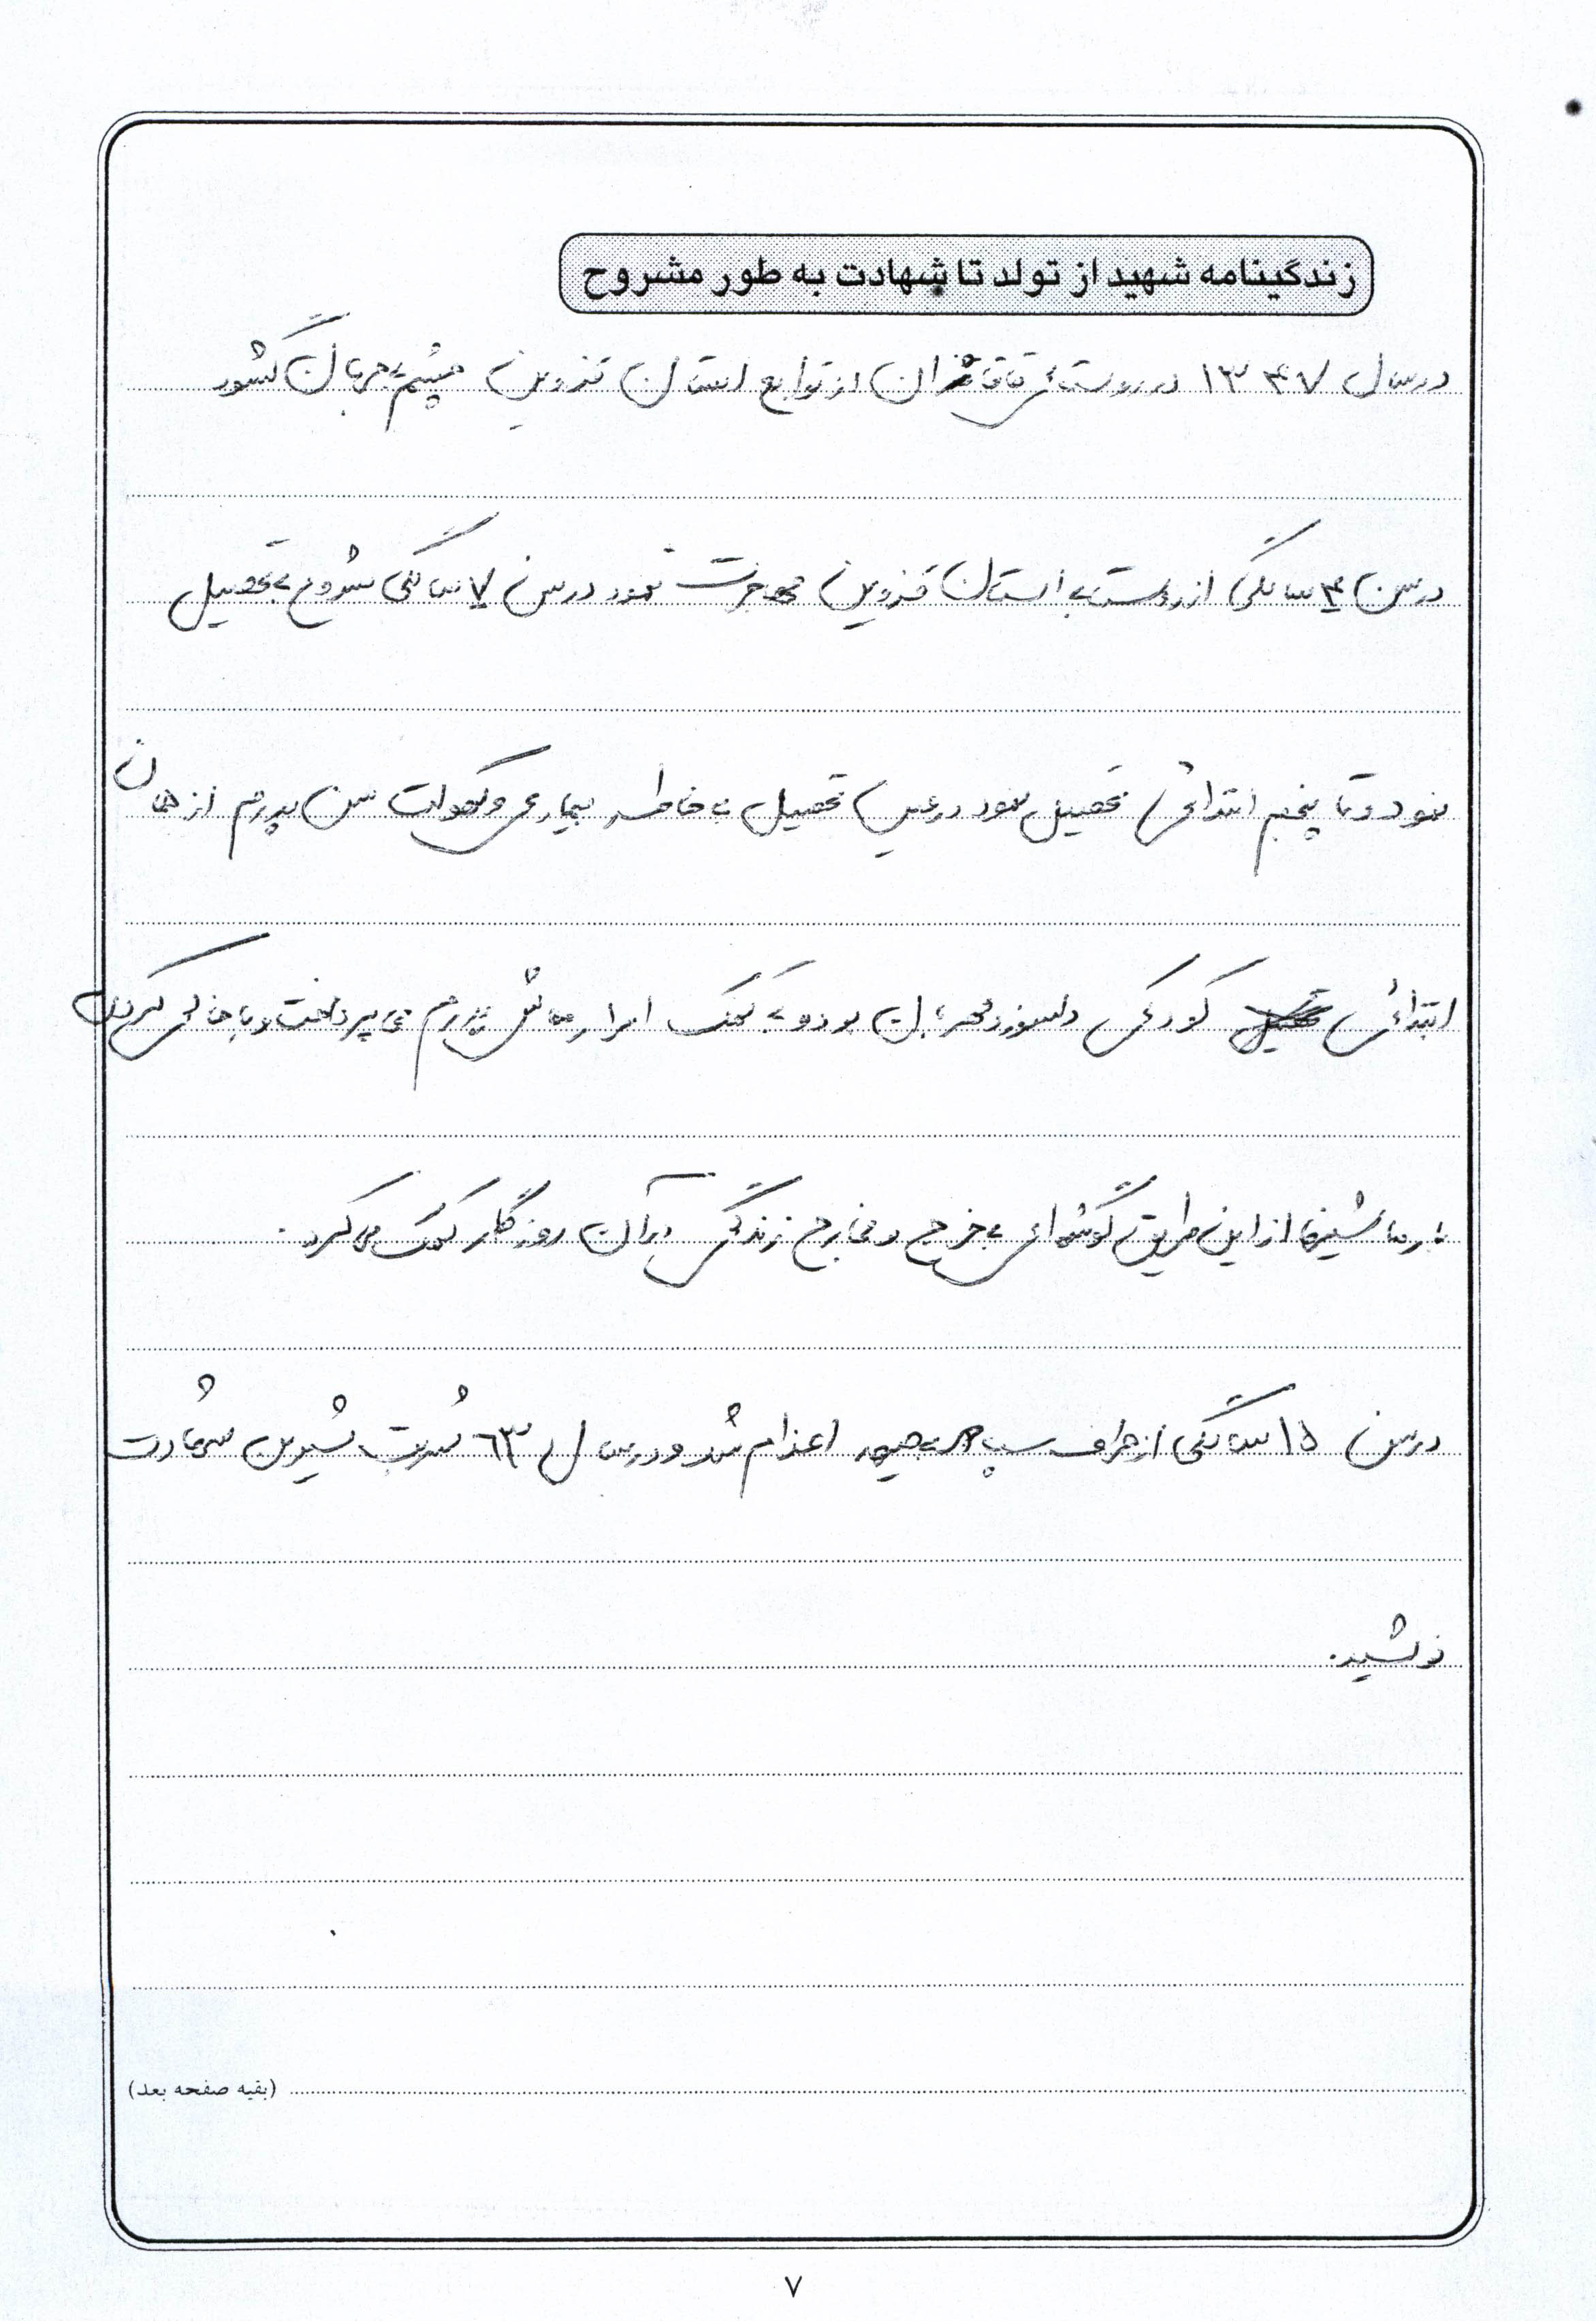 زندگینامه شهید از تولد تا شهادت به طور مشروح
در سال ۱۳۴۷ در روستای قاقازان از توابع استان قزوین چشم به جهان گشود
در سن ۴ سالگی از روستا به استان قزوین مهاجرت نمود در سن ۷ سالگی شروع به تحصیل
نمود و تا پنجم ابتدائی تحصیل نمود در عین تحصیل به خاطر بیماری و کهولت سن پدرم از همان
ابتدائی کودکی دلسوز و مهربان بود و به کمک امرار معاش پدرم می پرداخت و با خالی کردن
بار ماشینها از این طریق گوشه ای به خرج و مخارج زندگی در آن روزگار کمک می کرد.
در سن ۱۵ سالگی از طرف سپاه به جبهه اعزام شد و در سال ۶۳ شربت شیرین شهادت
نوشید.
(بقیه صفحه بعد)
۷